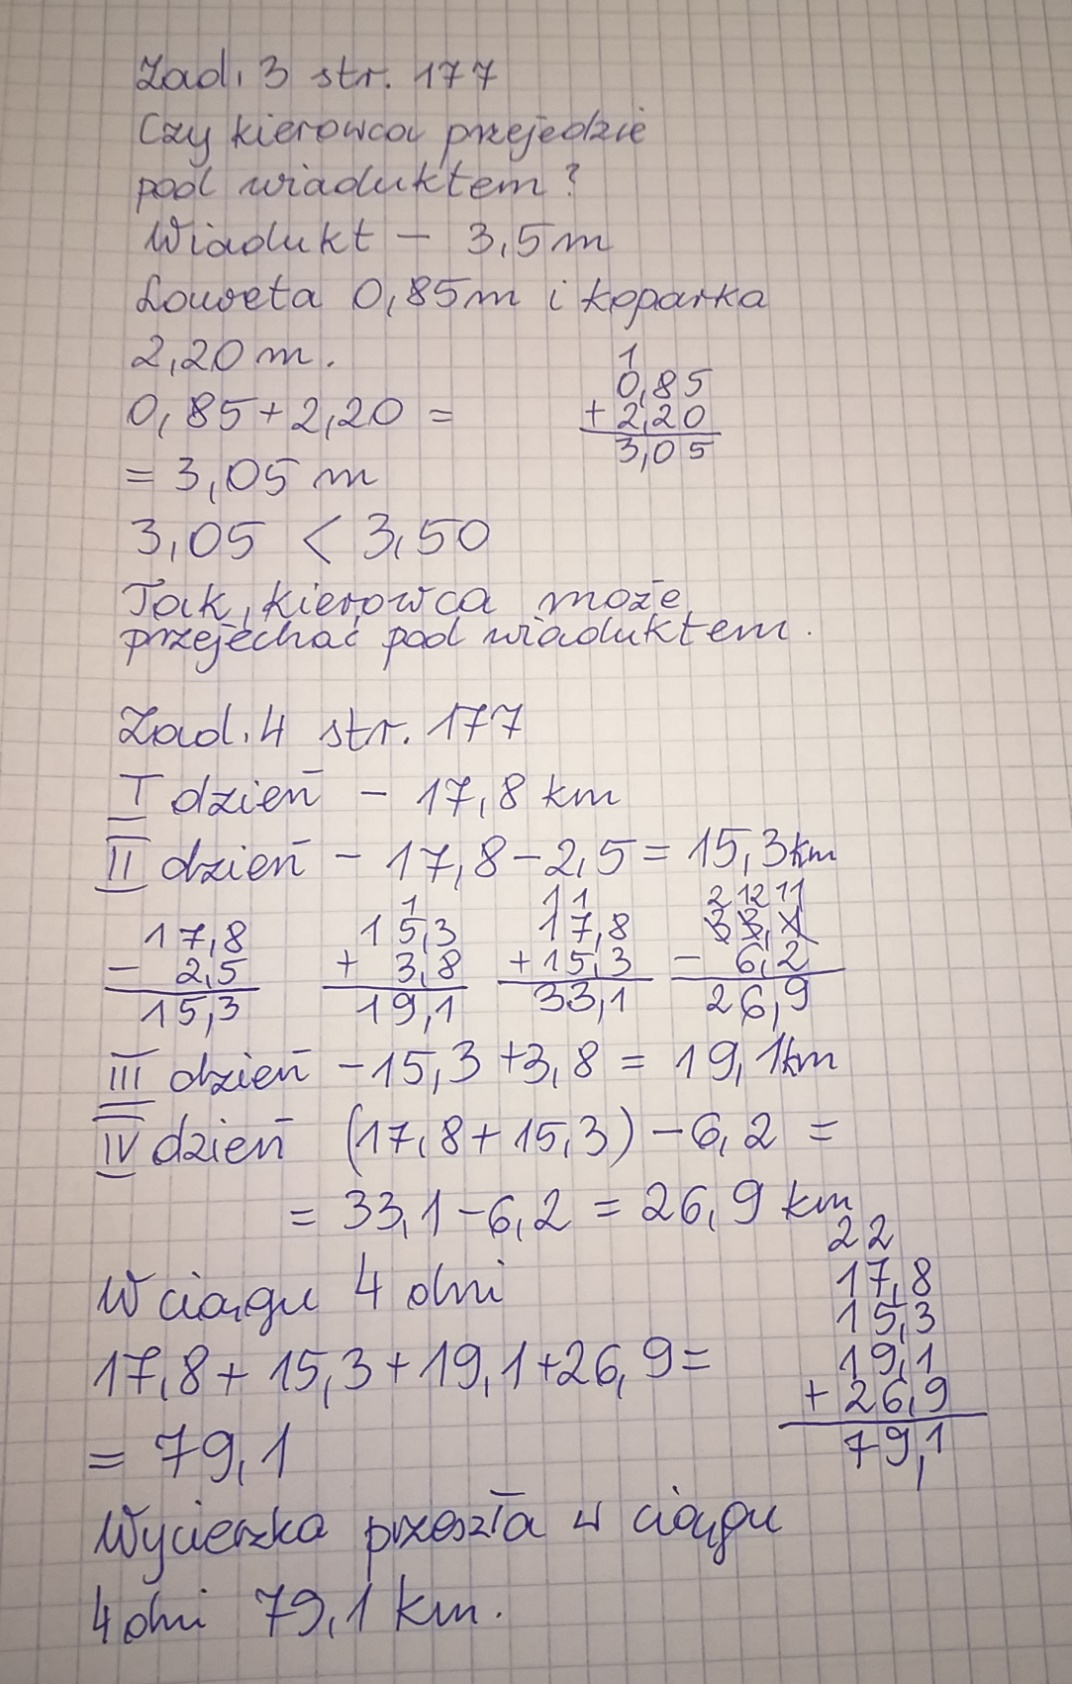 Zad. 3 str. 177
Czy kierowca przejedzie
pod wiaduktem?
Wiadukt - 3,5m
Laweta 0,85m i koparka
2,20 m.
0,85+2,20 =
1
0,85
+ 2,20
3,05
= 3,05 m
3,05 < 3,50
Tak, kierowca może
przejechać pod wiaduktem.
Zad. 4 str. 177
I dzień - 17,8 km
II dzień - 17,8-2,5 = 15,3km
17,8
- 2,5
15,3
1
15,3
+ 3,8
19,1
11
17,8
+15,3
33,1
2 12 11
33,1
- 6,2
26,9
III dzień -15,3+3,8 = 19,1km
IV dzień (17,8+15,3)-6,2 =
= 33,1-6,2 = 26,9 km
W ciągu 4 dni
17,8+15,3+19,1+26,9=
22
17,8
15,3
19,1
+ 26,9
79,1
= 79,1
Wycieczka przeszła w ciągu
4 dni 79,1 km.